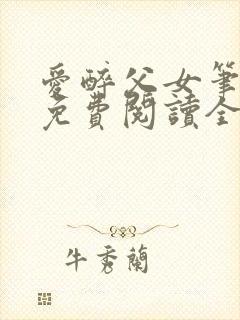 愛醉父女筆
免費閱讀全
牛秀蘭